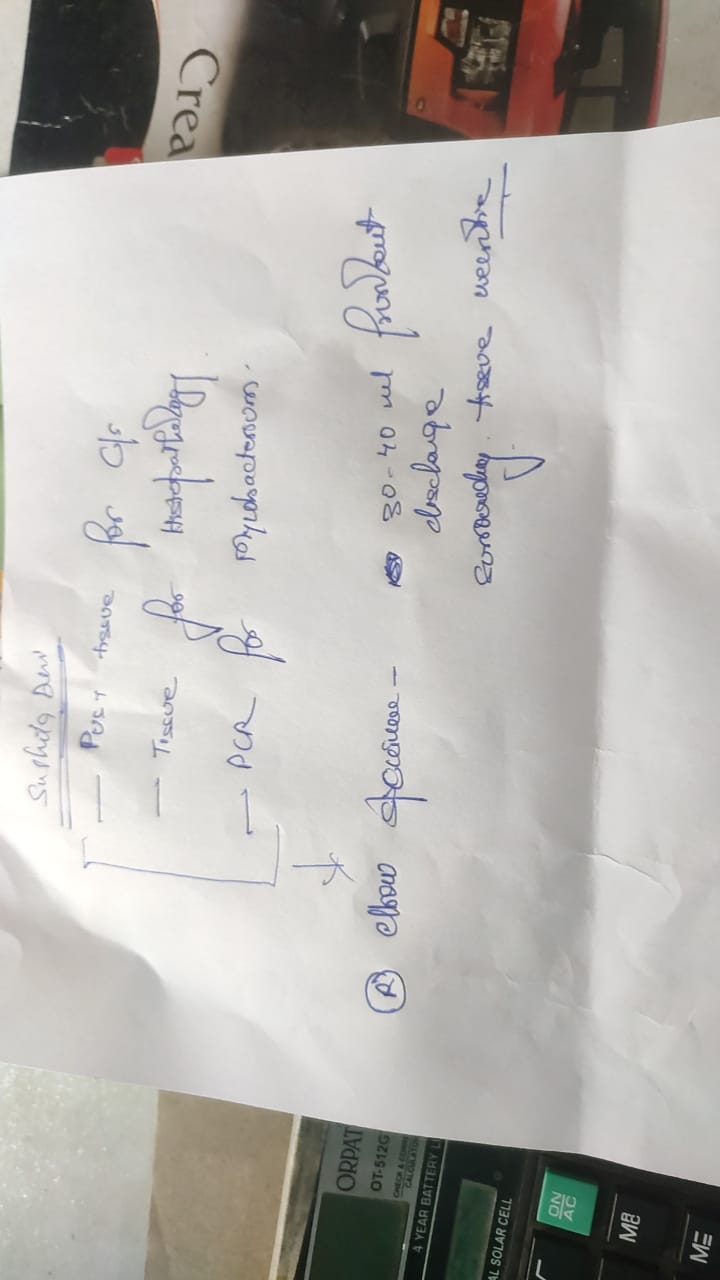 Sushila Devi
— Pus + tissue for C/s
— Tissue for Histopathology.
— PCR for Mycobacterium.
(R) elbow specimen - 30-40 ml purulent
discharge
surrounding tissue necrotic
Crea
ORPAT
OT-512G
CHECK & CORR
CALCULATOR
4 YEAR BATTERY L
AL SOLAR CELL
ON/AC
MR
M=